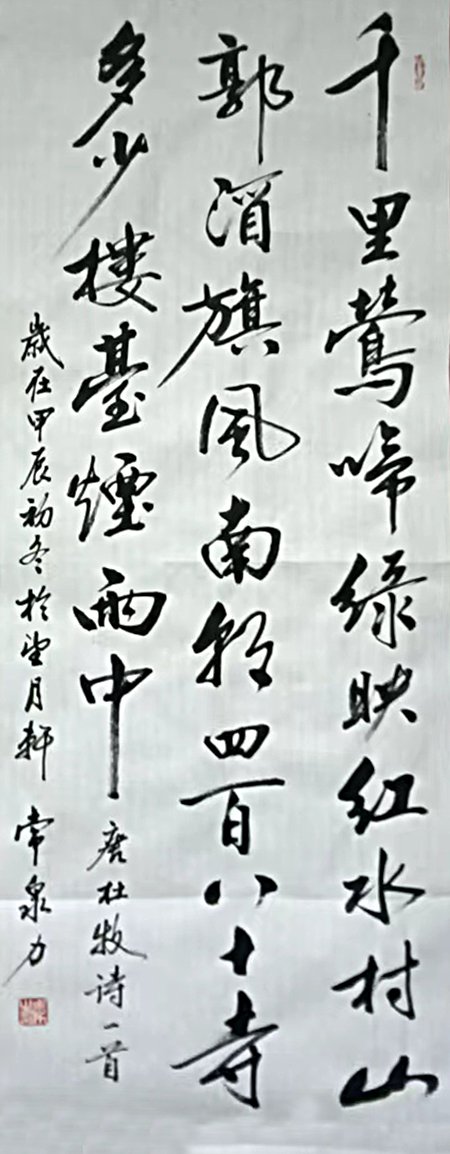 千里鶯啼緑映紅水村山
郭酒旗風南朝四百八十寺
多少樓臺煙雨中 唐杜牧诗一首
歲在甲辰初冬於望月軒 常泉力